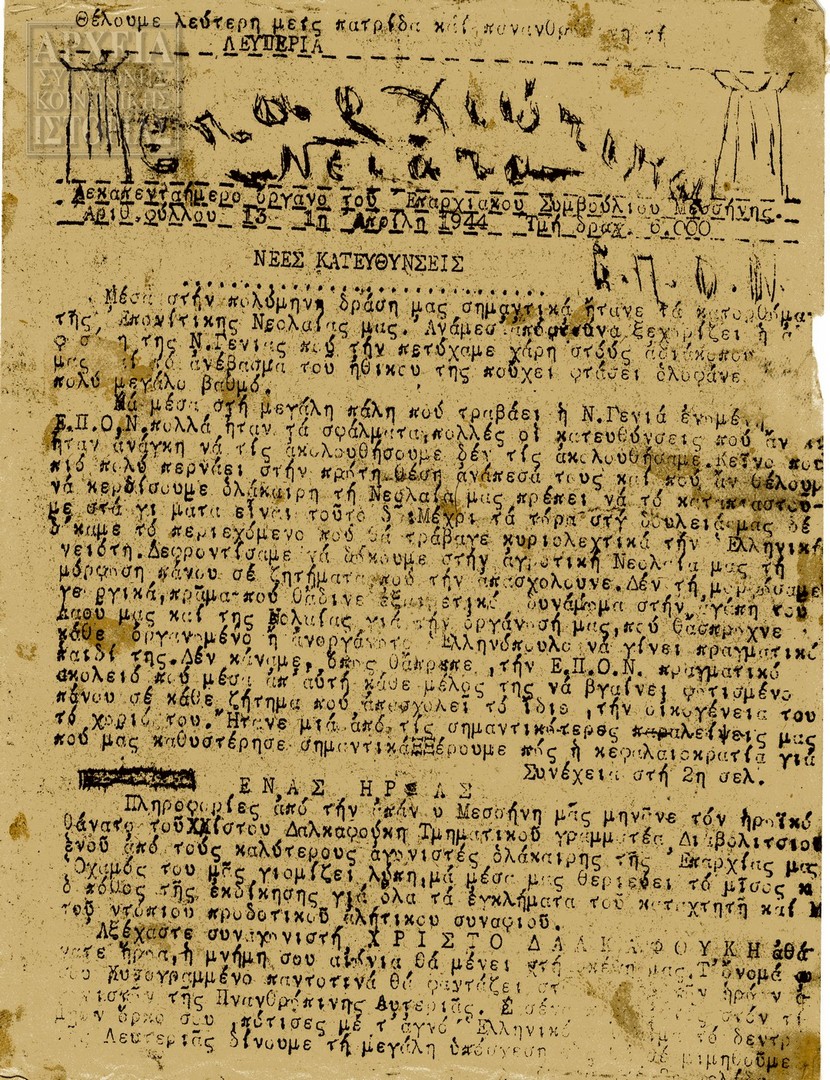 Θέλουμε λεύτερη μεις πατρίδα καί πανανθρώπινη τή
ΛΕΥΤΕΡΙΑ
ΑΡΧΕΙΑ
ΣΥΓΧΡΟΝΗΣ
ΚΟΙΝΩΝΙΚΗΣ
ΙΣΤΟΡΙΑΣ
Επαρχιώτικα
Νειάτα
Δεκαπενταήμερο όργανο του Έπαρχιακού Συμβούλιου Μεσσήνης.
Αριθ.φύλλου 13 1η Απρίλη 1944 Τμή δραχ. 6.000
Ε.Π.Ο.Ν.
ΝΕΕΣ ΚΑΤΕΥΘΥΝΣΕΙΣ
Μέσα στήν πολύμηνη δράση μας σημαντικά ήτανε τά κατορθώμα-
της Έπονίτικης Νεολαίας μας. Ανάμεσ ξεχωρίζει ή
της Ν.Γενιάς πού τήν πετύχαμε χάρη στούς άδιάκοπου
μας τό άνέβασμα του ήθικου της πούχει φτάσει όλοφάνε
πολύ μεγάλο βαθμό.
Μά μέσα στή μεγάλη πάλη πού τραβάει ή Ν.Γενιά ένωμένη
Ε.Π.Ο.Ν. πολλά ήταν τά σφάλματα, πολλές οί κατευθύνσεις πού άν
ήταν άνάγκη νά τίς άκολουθήσουμε δέν τίς άκολουθήσαμε. Κείνο που
πιό πολύ περνάει στήν πρώτη θέση άνάπεσά τους καί πού άν θέλουμ
νά κερδίσουμε όλάκαιρη τή Νεολαία μας πρέπει νά τό
με στά γι ματα είναι τούτο δ : Μέχρι τά τώρα στή δουλειά μας δέ
δόκαμε τό περιεχόμενο πού θά τράβαγε κυριολεχτικά τήν Έλληνική
νειότη. Δεφροντίσαμε νά δόκουμε στήν άγροτική Νεολαία μας τή
μόρφωση πάνου σέ ζητήματα πού τήν άπασχολουνε. Δέν τή μορφώσαμε
γεωργικά, πράμα πού θάδινε έξαιρετικό δυνάμωμα στήν άγάπη του
Λαού μας καί της Νολαίας γιά τήν όργάνωσή μας, πού θάσπρωχνε
κάθε όργανωμένο ή άνοργάνωτο Έλληνόπουλο νά γίνει πραγματικό
παιδί της. Δέν κάναμε, όπως θάπρεπε, τήν Ε.Π.Ο.Ν. πραγματικό
σκολειό πού μέσα άπ' αύτή κάθε μέλος της νά βγαίνει φωτισμένο
πάνου σέ κάθε ζήτημα πού άπασχολεί τό ίδιο, τήν οίκογένεια του
τό χωριό του. Ήτανε μιά άπό τίς σημαντικότερες παραλείψεις μας
πού μας καθυστέρησε σημαντικά. Ξέρουμε πώς ή κεφαλαιοκρατία γιά
Συνέχεια στή 2η σελ.
ΕΝΑΣ ΗΡΩΑΣ
Πληροφορίες άπό τήν άπάν υ Μεσσήνη μάς μηνάνε τόν ήρωικό
θάνατο τού Χρίστου Δαλκαφούκη Τμηματικού γραμματέα Διαβολιτσιού
ένού άπό τούς καλύτερους άγωνιστές όλάκαιρης τής Έπαρχίας μας
Ό χαμός του μάς γιομίζει λύπη, μά μέσα μας θεριεύει τό μίσος κ
ό πόθος τής έκδίκησης γιά όλα τά έγκλήματα τού καταχτητή καί
τού ντόπιου προδοτικού άλήτικου συναφιού.
Αξέχαστε συναγωνιστή, ΧΡΙΣΤΟ ΔΑΛΚΑΦΟΥΚΗ άθά
νατε ήρωα, ή μνήμη σου αίώνια θά μένει στή σκέψη μας. Τ' όνομά
παντοτινά θά φαντάζει στ ήρώων
τής Πνανθρώπινης Λυτεριάς. Σ σέν στόν τί
μιον όρκο σου, πότισες μέ τ' άγνό Έλληνικό τό δεντρ
Λευτεριάς δίνουμε τή μεγάλη ύπόσχεση μιμηθούμε